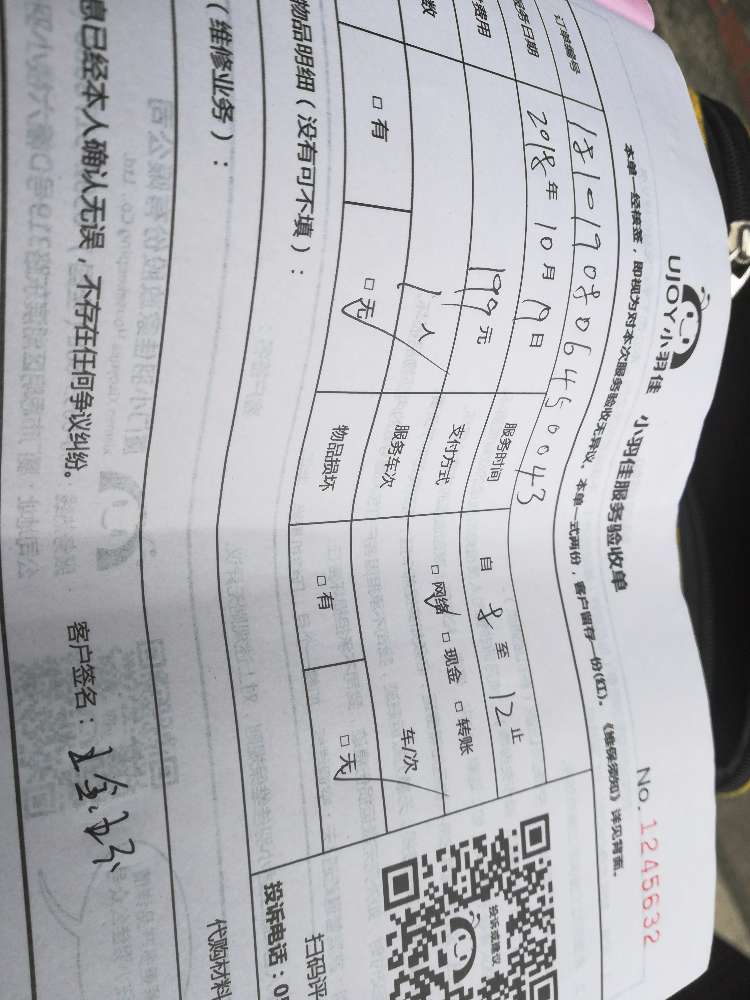 UJOY小羽佳 小羽佳服务验收单 No.1245632
本单一经核签，即视为对本次服务验收无异议。本单一式两份，客户留存一份(红)。《维保须知》详见背面。
订单编号 1810190806450043
务日期 2018年10月9日 服务时间 自 8 至 12 止
费用 199元 支付方式 □网络 □现金 □转账
数 1人 服务车次 车/次
□有 □无 物品损坏 □有 □无
物品明细（没有可不填）：
（维修业务）：
息已经本人确认无误，不存在任何争议纠纷。 客户签名：
投诉或建议
扫码评
投诉电话：0
代购材料